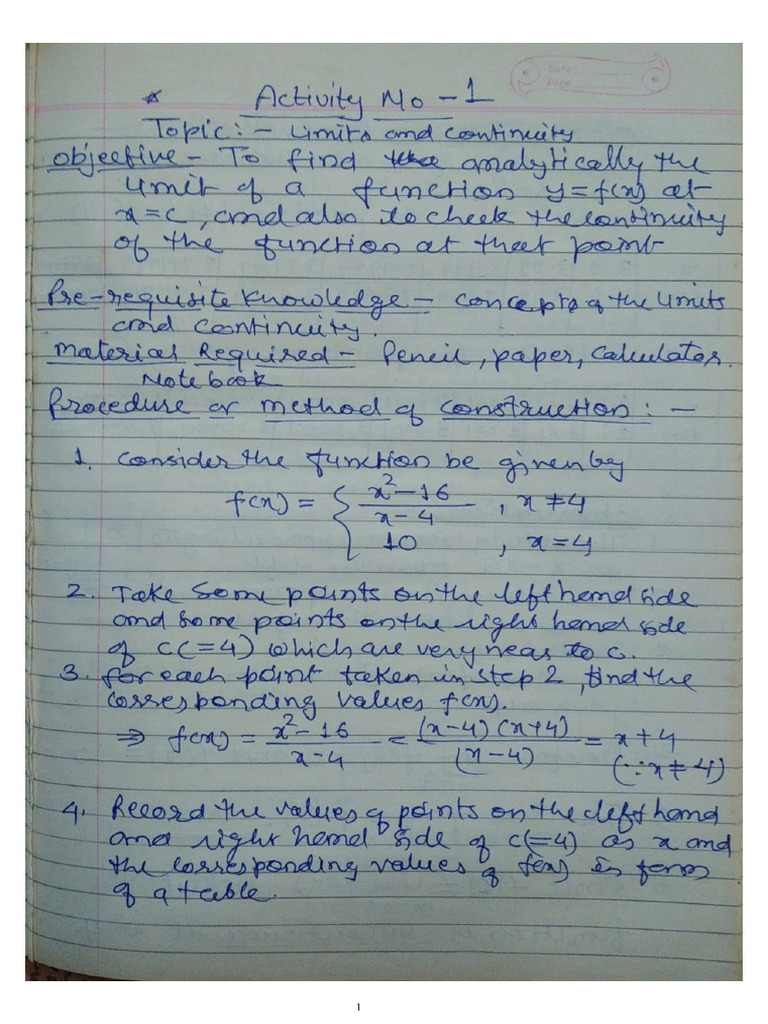 Date
Page
* Activity No - 1
Topic:- Limits and continuity
Objective - To find the analytically the
limit of a function y=f(x) at
x=c, and also to check the continuity
of the function at that point
Pre-requisite knowledge - concepts of the limits
and continuity.
Material Required - Pencil, paper, Calculator.
Note book
Procedure or method of construction: -
1. Consider the function be given by
f(x) = { x²-16 / x-4 , x ≠ 4
10 , x = 4
2. Take some points on the left hand side
and some points on the right hand side
of c(=4) which are very near to c.
3. for each point taken in step 2, find the
corresponding values f(x).
⇒ f(x) = x²-16 / x-4 = (x-4)(x+4) / (x-4) = x+4
(∵ x≠4)
4. Record the values of points on the left hand
and right hand side of c(=4) as x and
the corresponding values of f(x) in form
of a table.
1